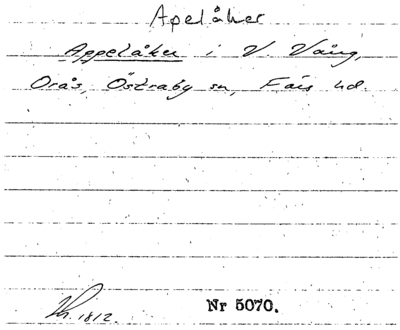 Apelåker
Appelåker i V. Vång,
Orås, Östraby sn, Färs hd.
1812.
Nr 5070.